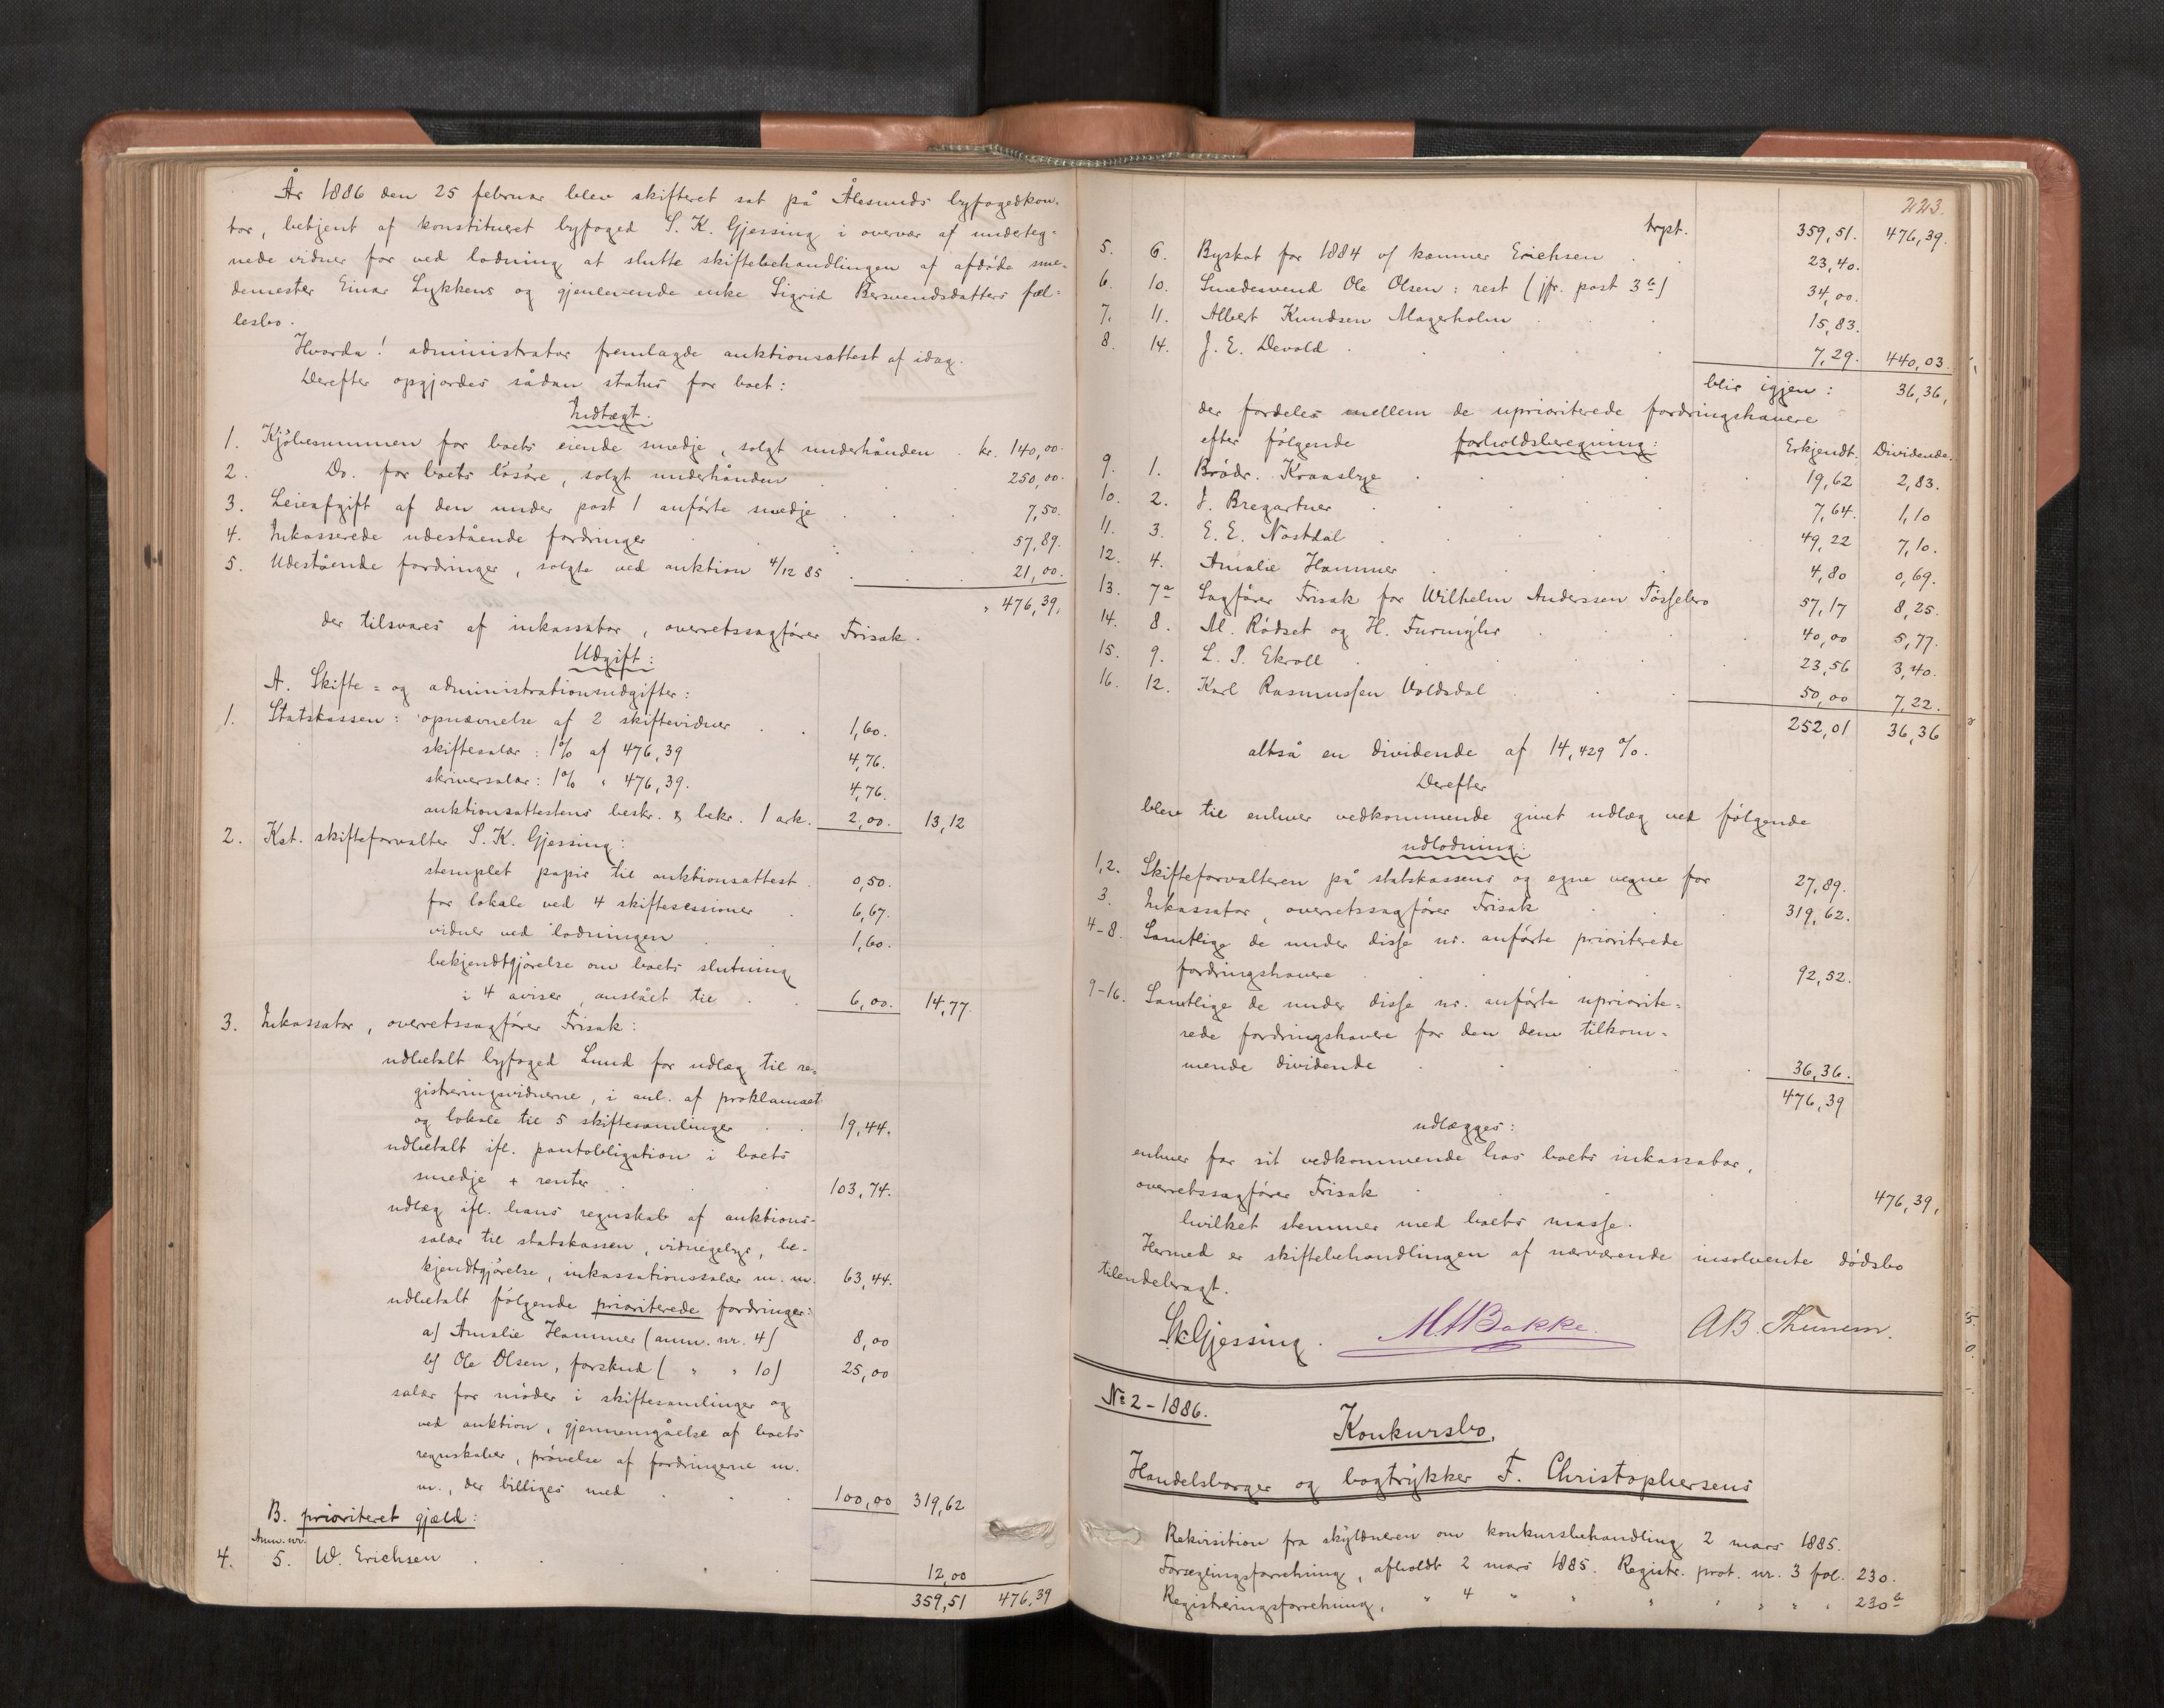 År 1886 den 25 februar blev skifteret sat på Ålesunds byfogedkon-
tor, betjent af konstitueret byfoged S. K. Gjessing i overvær af underteg-
nede vidner for ved lodning at slutte skiftebehandlingen af afdøde sme-
demester Einar Lykkens og gjenlevende enke Sigrid Bersvendsdatters fæl-
lesbo.
Hvorda! administrator fremlagde auktionsattest af idag.
Derefter opgjordes sådan status for boet:
Indtægt.
1. Kjøbesummen for boets eiende smedje, solgt underhånden . kr. 140,00.
2. Do. for boets løsøre, solgt underhånden 250,00.
3. Leieafgift af den under post 1 anførte smedje 7,50.
4. Inkasserede udestående fordringer 57,89.
5. Udestående fordringer, solgte ved auktion 4/12 85 21,00.
" 476,39,
der tilsvares af inkassator, overretssagfører Frisak.
Udgift:
A. Skifte= og administrationsudgifter:
1. Statskassen: opnævnelse af 2 skiftevidner 1,60.
skiftesalær: 1% af 476,39 4,76.
skriversalær: 1% " 476,39. 4,76.
auktionsattestens beskr. & bekr. 1 ark. 2,00. 13,12
2. Kst. skifteforvalter S. K. Gjessing:
stemplet papir til auktionsattest 0,50.
for lokale ved 4 skiftesessioner 6,67.
vidner ved lodningen 1,60.
bekjendtgjørelse om boets slutning
i 4 aviser, anslået til 6,00. 14,77.
3. Inkassator, overretssagfører Frisak:
udbetalt byfoged Lund for udlæg til re-
gistreringsvidnerne, i anl. af proklamaet
og lokale til 5 skiftesamlinger 19,44.
udbetalt ifl. pantobligation i boets
smedje + renter 103,74.
udlæg ifl. hans regnskab af auktions-
salær til statskassen, vidnegebyr, be-
kjendtgjørelse, inkassationssalær m. m. 63,44.
udbetalt følgende prioriterede fordringer:
a) Amalie Hammer (anm. nr. 4) 8,00
b) Ole Olsen, forskud ( " " 10) 25,00
salær for møder i skiftesamlinger og
ved auktion, gjennemgåelse af boets
regnskaber, prøvelse af fordringerne m.
m., der billiges med 100,00 319,62
B. prioriteret gjæld:
Anm. nr.
4. 5. W. Erichsen 12,00
359,51 476,39
223.
trpt. 359,51. 476,39.
5. 6. Byskat for 1884 v/ kæmner Erichsen 23,40.
6. 10. Smedesvend Ole Olsen: rest (jfr. post 3 b) 34,00.
7. 11. Albert Knudsen Magerholm 15,83.
8. 14. J. E. Devold 7,29. 440,03.
blir igjen: 36,36,
der fordeles mellem de uprioriterede fordringshavere
efter følgende forholdsberegning: Erkjendt. Dividende.
9. 1. Brødr. Kraasbye 19,62 2,83.
10. 2. J. Bregartner 7,64. 1,10
11. 3. E. E. Nastdal 49,22 7,10.
12. 4. Amalie Hammer 4,80 0,69.
13. 7a Sagfører Frisak for Wilhelm Anderssen Tøssebro 57,17 8,25.
14. 8. M. Rødset og H. Furmyhr 40,00 5,77.
15. 9. L. P. Ekroll 23,56 3,40.
16. 12. Karl Rasmussen Valdsdal 50,00 7,22.
252,01 36,36
altså en dividende af 14,429 %.
Derefter
blev til enhver vedkommende givet udlæg ved følgende
udlodning:
1,2. Skifteforvalteren på statskassens og egne vegne for 27,89.
3. Inkassator, overretssagfører Frisak 319,62.
4-8. Samtlige de under disse nr. anførte prioriterede
fordringshavere 92,52.
9-16. Samtlige de under disse nr. anførte upriorite=
rede fordringshavere for den dem tilkom=
mende dividende 36,36.
476,39
udlægges:
enhver for sit vedkommende hos boets inkassator,
overretssagfører Frisak 476,39,
hvilket stemmer med boets masse.
Hermed er skiftebehandlingen af nærværende insolvente dødsbo
tilendebragt.
SKGjessing. MABakke. AB. Thunem.
№ 2 - 1886.
Konkursbo.
Handelsborger og bogtrykker F. Christophersens
Rekvisition fra skyldneren om konkursbehandling 2 mars 1885.
Forseglingsforretning, afholdt 2 mars 1885. Registr. prot. nr. 3 fol. 230.
Registreringsforretning, " 4 " " " " " " 230 b